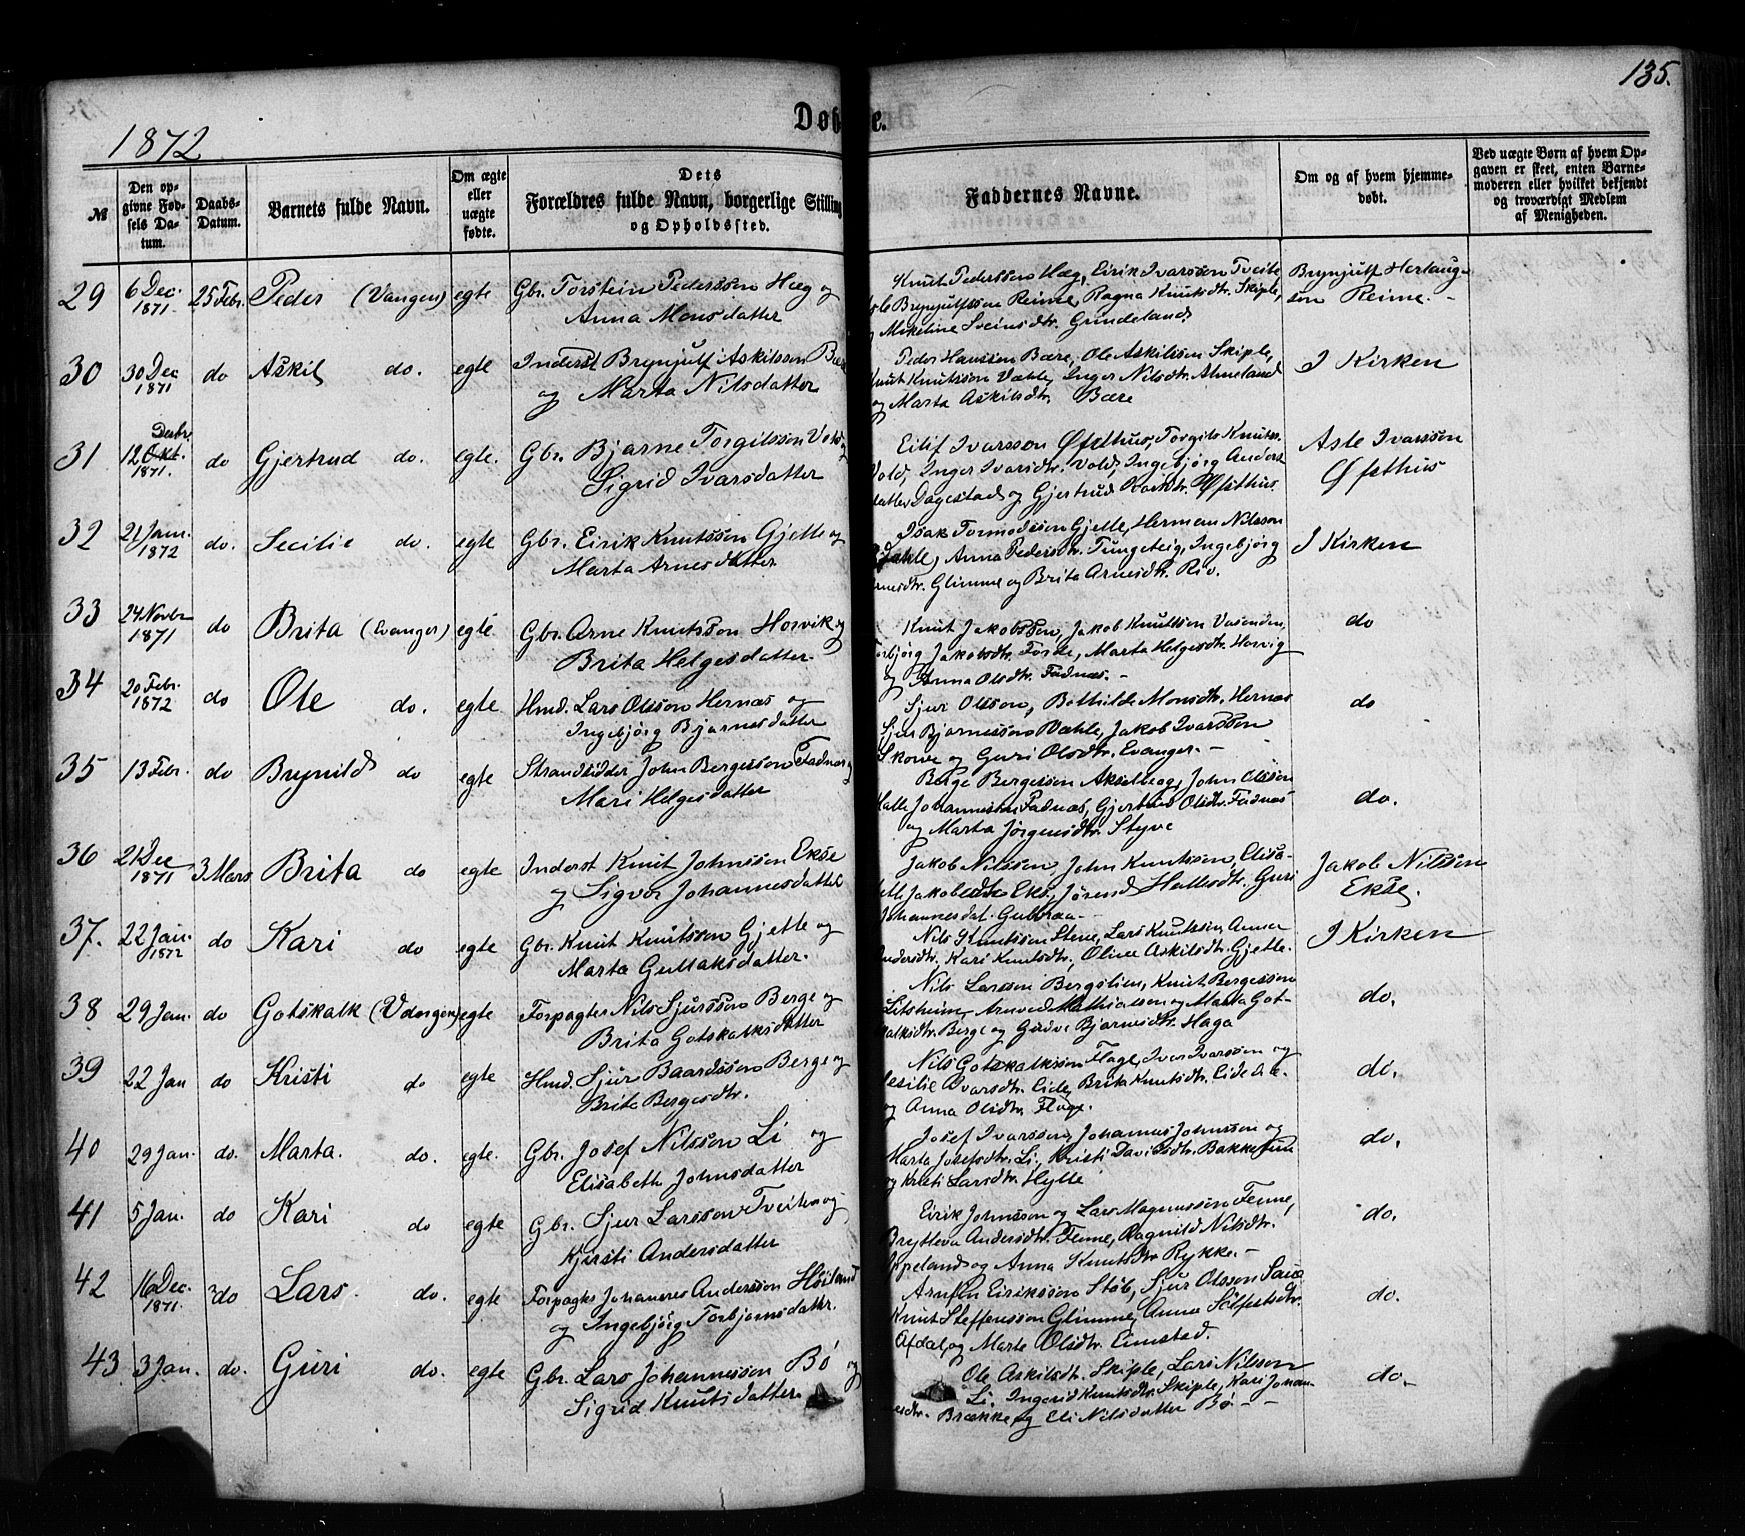 135.
1872
Døbte.
№
Den opgivne Fødsels Datum.
Daabs-Datum.
Barnets fulde Navn.
Om ægte eller uægte fødte.
Dets Forældres fulde Navn, borgerlige Stilling og Opholdssted.
Faddernes Navne.
Om og af hvem hjemmedøbt.
Ved uægte Børn af hvem Opgaven er skeet, enten Barnemoderen eller hvilket bekjendt og troværdigt Medlem af Menigheden.
29 6 Dec. 1871. 25 Febr. Peder (Vangen) egte Gbr. Torstein Pedersson Hæg og
Anna Monsdatter
Knut Pedersson Hæg, Eirik Ivarsson Tveite
Brynjulfsson Reime, Ragna Knutsdtr. Skiple,
Mikeline Sveinsdtr. Grindeland
Brynjulf Herlaug-
sön Reime. -
30 30 Dec 1871 do Askil do. egte Inderst Brynjulf Askilsson Bære
og Marta Nilsdatter
Peder Hansson Bære, Ole Askilsson Skiple,
Knut Knutsson Væhle, Inger Nilsdtr. Almeland
og Marta Askilsdtr. Bære
I Kirken
31 12 Decbr. 1871. do Gjertrud do. egte. Gbr. Bjarne Torgilsson Vold og
Sigrid Ivarsdatter
Eilif Ivarsson Øfsthus, Torgils Knuts.
Vold, Inger Ivarsdtr. Vold, Ingebjörg Anders
datter Dagestad og Gjertrud Øfsthus.
Asle Ivarsson
Øfsthus
32 21 Janu. 1872 do. Secilie do. egte Gbr. Eirik Knutsson Gjelle og
Marta Arnesdatter
Isak Tormodsson Gjelle, Herman Nilsson
Anna Pedersdtr. Tungeteig, Ingebjörg
Glimme og Brita Arnesdtr. Riv.
I Kirken
33 24 Novbr 1871 do Brita (Evanger) egte Gbr. Arne Knutsson Horvik og
Brita Helgesdatter
Knut Jakobsson, Jakob Knutsson Vasenden,
Torbjörg Jakobsdtr. Marta Helgesdtr. Horvig
og Anna Olsdtr. Fadnæs. -
do
34 20 Febr. 1872 do Ole do. egte Hmd. Lars Olsson Hernæs og
Ingebjörg Bjarnesdatter
Sjur Olsson, Bothilde Monsdtr. Hernæs
Sjur Bjarnesson Væhle, Jakob Ivarsson
Skorve og Guri Olsdtr. Evanger. -
do
35 13 Febr. do Brynild do egte Strandsidder John Bergesson Fadnæs og
Mari Helgesdatter
Berge Bergesson Akselberg, John Olsson
Halle Johannesson Fadnæs, Gjertrud Olsdtr. Fadnæs
og Marta Jörgensdtr. Styve
do.
36 21 Dec 1871 3 Mars Brita do egte Inderst Knut Johnsson Ekse
og Sigvor Johannesdatter
Jakob Nilsson John Knutsson, Elisa-
beth Jakobsdtr Ekse, Jörend Hallesdtr. Guri
Johannesdat. Gulbraa -
Jakob Nilsson
Ekse.
37. 22 Jan. 1872 do Kari do egte Gbr. Knut Knutsson Gjelle og
Marta Gullaksdatter.
Nils Knutsson Stene, Lars Knutsson, Anna
Andersdtr. Kari Knutsdtr., Olive Askilsdtr. Gjelle.
I Kirken
38 29 Jan. do Gotskalk (Vangen) egte Forpagter Nils Sjursson Berge og
Brita Gotskalksdatter
Nils Larsson Bergslien, Knut Bergesson
Litsheim, Arnved Mathiasson og Marta Got-
skalksdtr. Berge og Gudve Bjarnesdtr. Haga
do.
39 22 Jan do Kristi do egte Hmd. Sjur Baardsson Berge og
Brita Bergesdtr.
Nils Gotskalksson Flage, Ivar Ivarsson og
Cesilie Ivarsdtr. Eide, Brita Knutsdtr. Eide
og Anna Olsdtr Flage.
do.
40 29 Jan. do. Marta. do. egte. Gbr. Josef Nilsson Li og
Elisabeth Johnsdatter
Josef Ivarsson, Johannes Johnsson og
Marta Josefsdtr. Li, Kristi Davidsdtr. Bakketun
og Kristi Larsdtr. Hylle
do.
41 5 Jan. do Kari do egte Gbr. Sjur Larsson Tveiten og
Kjersti Andersdatter
Eirik Johnsson og Lars Magnusson Fenne,
Bryteva Andersdtr. Fenne, Ragnild Nilsdtr.
og Anna Knutsdtr Rykke. -
do.
42 16 Dec. 1871. do Lars. do. egte Forpagter Johannes Andersson Höiland
og Ingebjörg Torbjörnsdattr.
Arnfin Eiriksson Stöb, Sjur Olsson Saue
Knut Steffensson Glimme, Anna Sölfestsdtr.
Afdal, og Marte Olsdtr. Eimstad.
do.
43 3 Jan. do. Guri do. egte Gbr. Lars Johannesson Bö og
Sigrid Knutsdatter
Ole Askilsdtr. Skiple, Lars Nilsson
Li, Ingerid Knutsdtr. Skiple, Kari Johan-
nesdtr. Brække og Eli Nilsdatter Bö - -
do. -